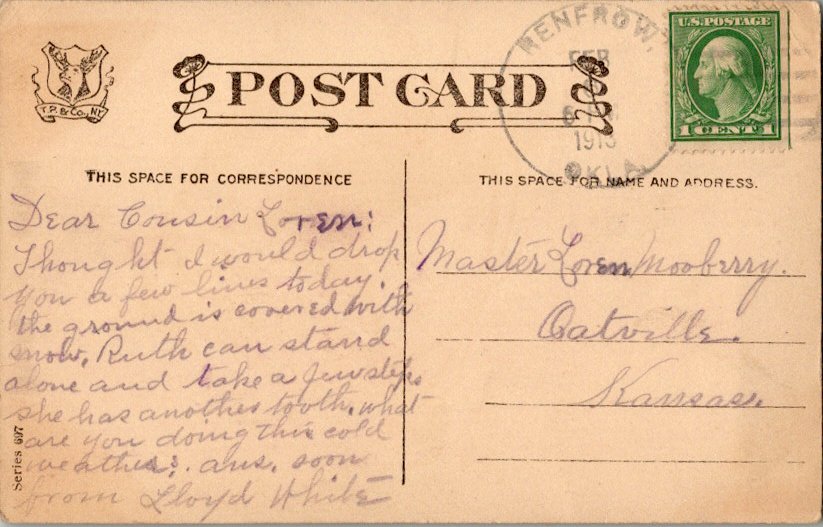 T.P. & Co., N.Y.
POST CARD
RENFROW,
FEB
1913
OKLA.
U.S. POSTAGE
1 CENT 1
THIS SPACE FOR CORRESPONDENCE
THIS SPACE FOR NAME AND ADDRESS.
Dear Cousin Loren:
Thought I would drop
you a few lines today.
the ground is covered with
snow. Ruth can stand
alone and take a few steps
she has another tooth. what
are you doing this cold
weather? ans. soon
from Lloyd White
Master Loren Mooberry.
Oatville.
Kansas.
Series 697